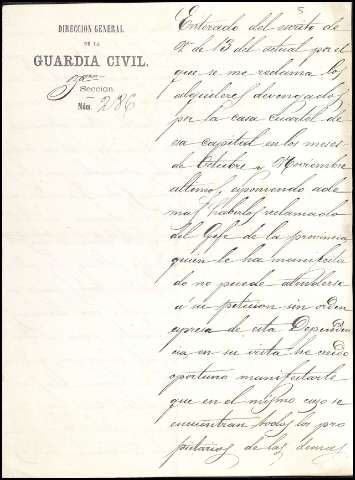 DIRECCION GENERAL
DE LA
GUARDIA CIVIL.
Seccion
Núm. 286
Enterado del escrito de
V. de 13 del actual por el
que se me reclama los
alquileres devengados
por la casa cuartel de
esa capital en los meses
de Octubre y Noviembre
ultimos, esponiendo ade
mas haberlos reclamado
del Gefe de la provincia,
quien le ha manifesta
do no puede atenderse
á su peticion sin orden
espresa de esta Dependen
cia en su vista he creido
oportuno manifestarle
que en el mismo caso se
encuentran todos los pro
pietarios de las demas